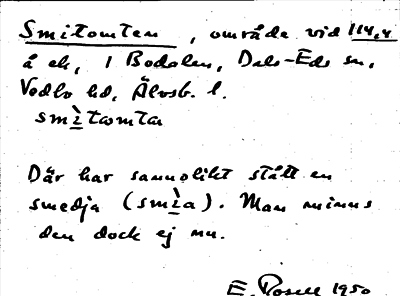 Smitomten, område vid 114,4
å ek, i Bodalen, Dals-Eds sn,
Vedbo hd, Älvsb. l.
smìtomta
Där har sannolikt stått en
smedja (smìa). Man minns
den dock ej nu.
E. Rosell 1950